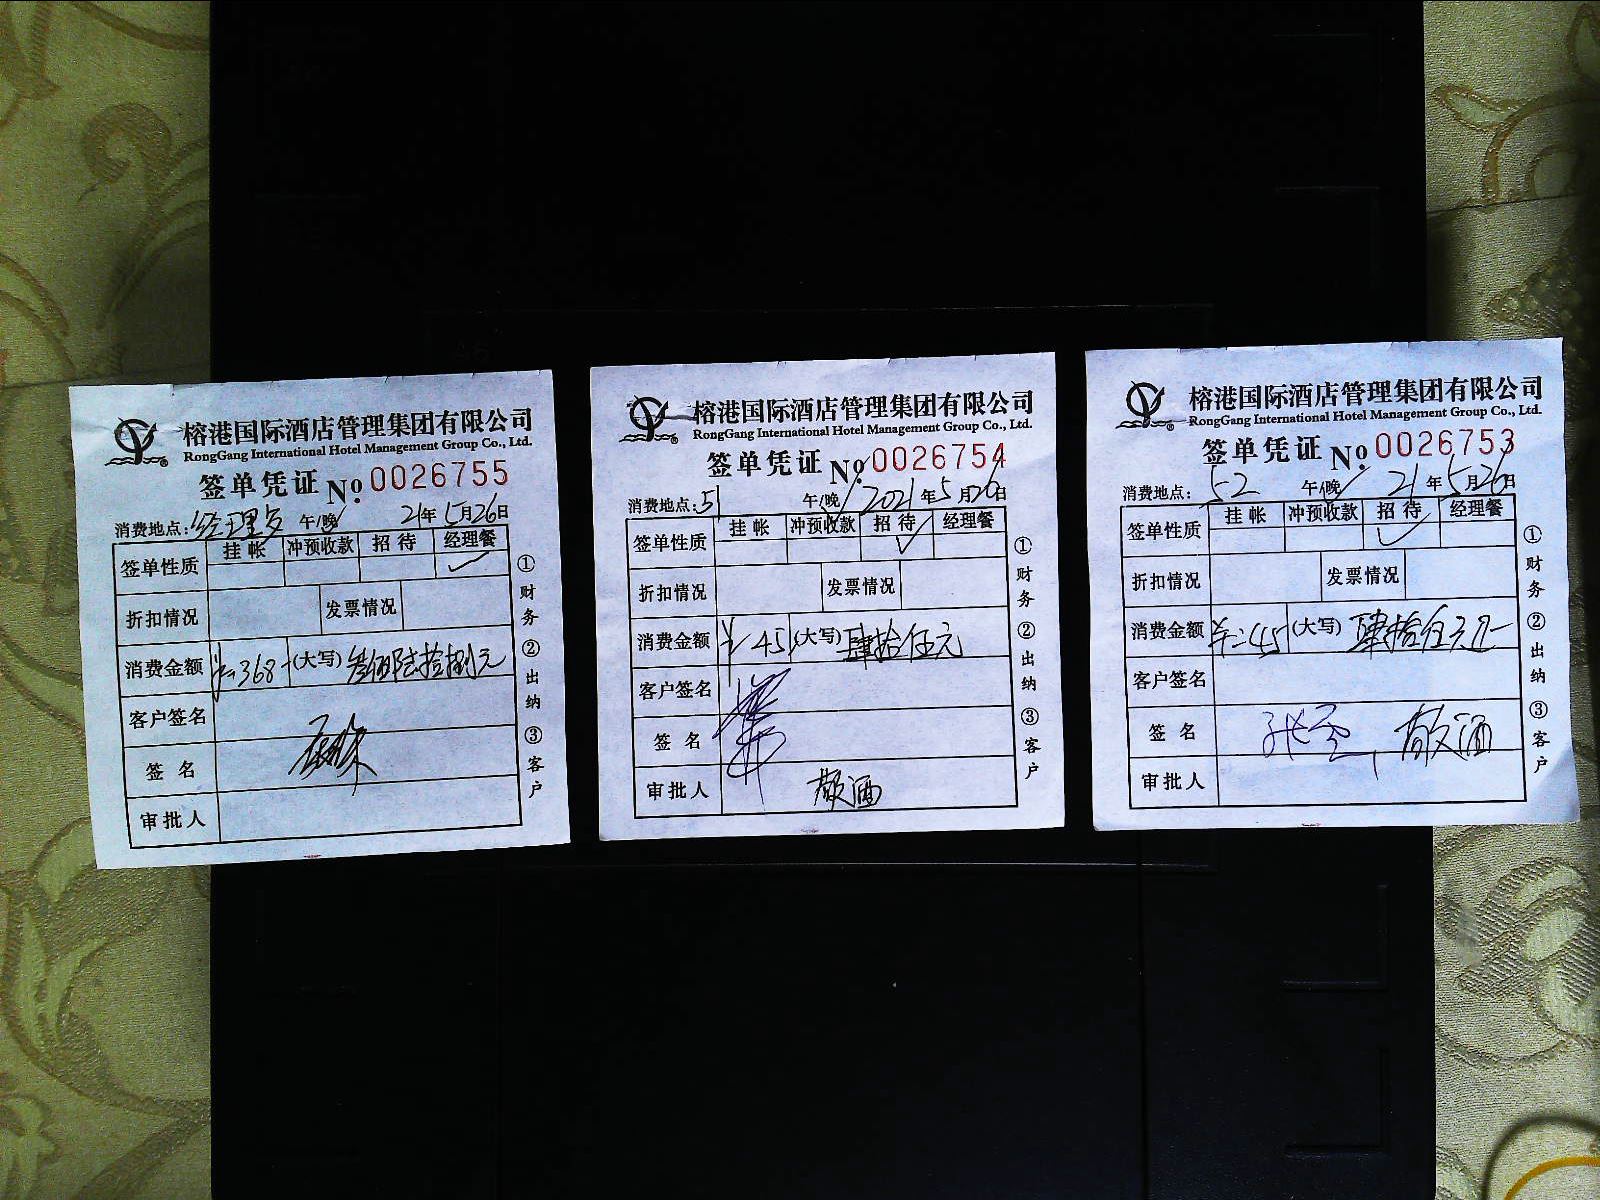 榕港国际酒店管理集团有限公司
RongGang International Hotel Management Group Co., Ltd.
签单凭证 No. 0026755
消费地点: 经理 午/晚 21年5月26日
签单性质 挂帐 冲预收款 招待 经理餐 ✓
折扣情况 发票情况
消费金额 ¥368 (大写) 叁佰陆拾捌元
客户签名
签名
审批人
①财务 ②出纳 ③客户
榕港国际酒店管理集团有限公司
RongGang International Hotel Management Group Co., Ltd.
签单凭证 No. 0026754
消费地点: 51 午/晚 2021年5月26日
签单性质 挂帐 冲预收款 招待 ✓ 经理餐
折扣情况 发票情况
消费金额 ¥45 (大写) 肆拾伍元
客户签名
签名
审批人 敬酒
①财务 ②出纳 ③客户
榕港国际酒店管理集团有限公司
RongGang International Hotel Management Group Co., Ltd.
签单凭证 No. 0026753
消费地点: 52 午/晚 21年5月26日
签单性质 挂帐 冲预收款 招待 ✓ 经理餐
折扣情况 发票情况
消费金额 ¥45 (大写) 肆拾伍元正
客户签名
签名 敬酒
审批人
①财务 ②出纳 ③客户